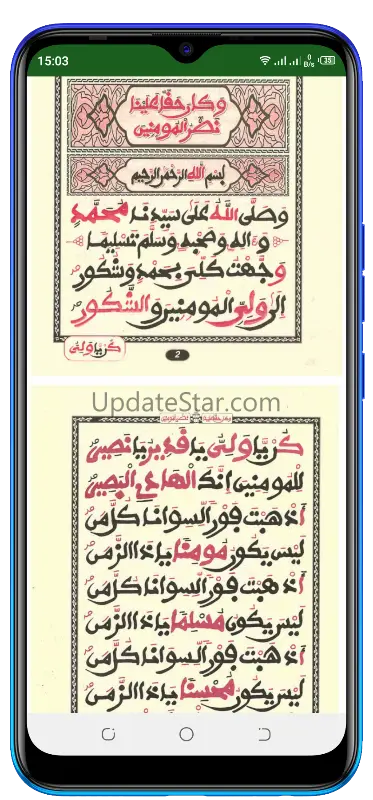 15:03
0 B/s
35
وَكَانَ حَقًّا عَلَيْنَا
نَصْرُ الْمُومِنِينَ
بسم الله الرحمن الرحيم
وَصَلَّى اللَّهُ عَلَى سَيِّدِنَا مُحَمَّدٍ
وَءَالِهِ وَصَحْبِهِ وَسَلَّمَ تَسْلِيمًا
وَجَّهْتُ كُلِّي بِحَمْدٍ وَشُكُورْ
إِلَى وَلِيِّ الْمُومِنِينَ وَالشَّكُورْ
كُنْ يَا وَلِيُّ
2
UpdateStar.com
كُنْ يَا وَلِيُّ يَا قَدِيرُ يَا نَصِيرْ
لِلْمُومِنِينَ إِنَّكَ الْهَادِي الْبَصِيرْ
أَذْهَبْتَ فِوْرًا لِسِوَانَا كُلَّ مَنْ
لَيْسَ يَكُونُ مُومِنًا يَا ذَا الزَّمَنْ
أَذْهَبْتَ فِوْرًا لِسِوَانَا كُلَّ مَنْ
لَيْسَ يَكُونُ مُسْلِمًا يَا ذَا الزَّمَنْ
أَذْهَبْتَ فِوْرًا لِسِوَانَا كُلَّ مَنْ
لَيْسَ يَكُونُ مُحْسِنًا يَا ذَا الزَّمَنْ